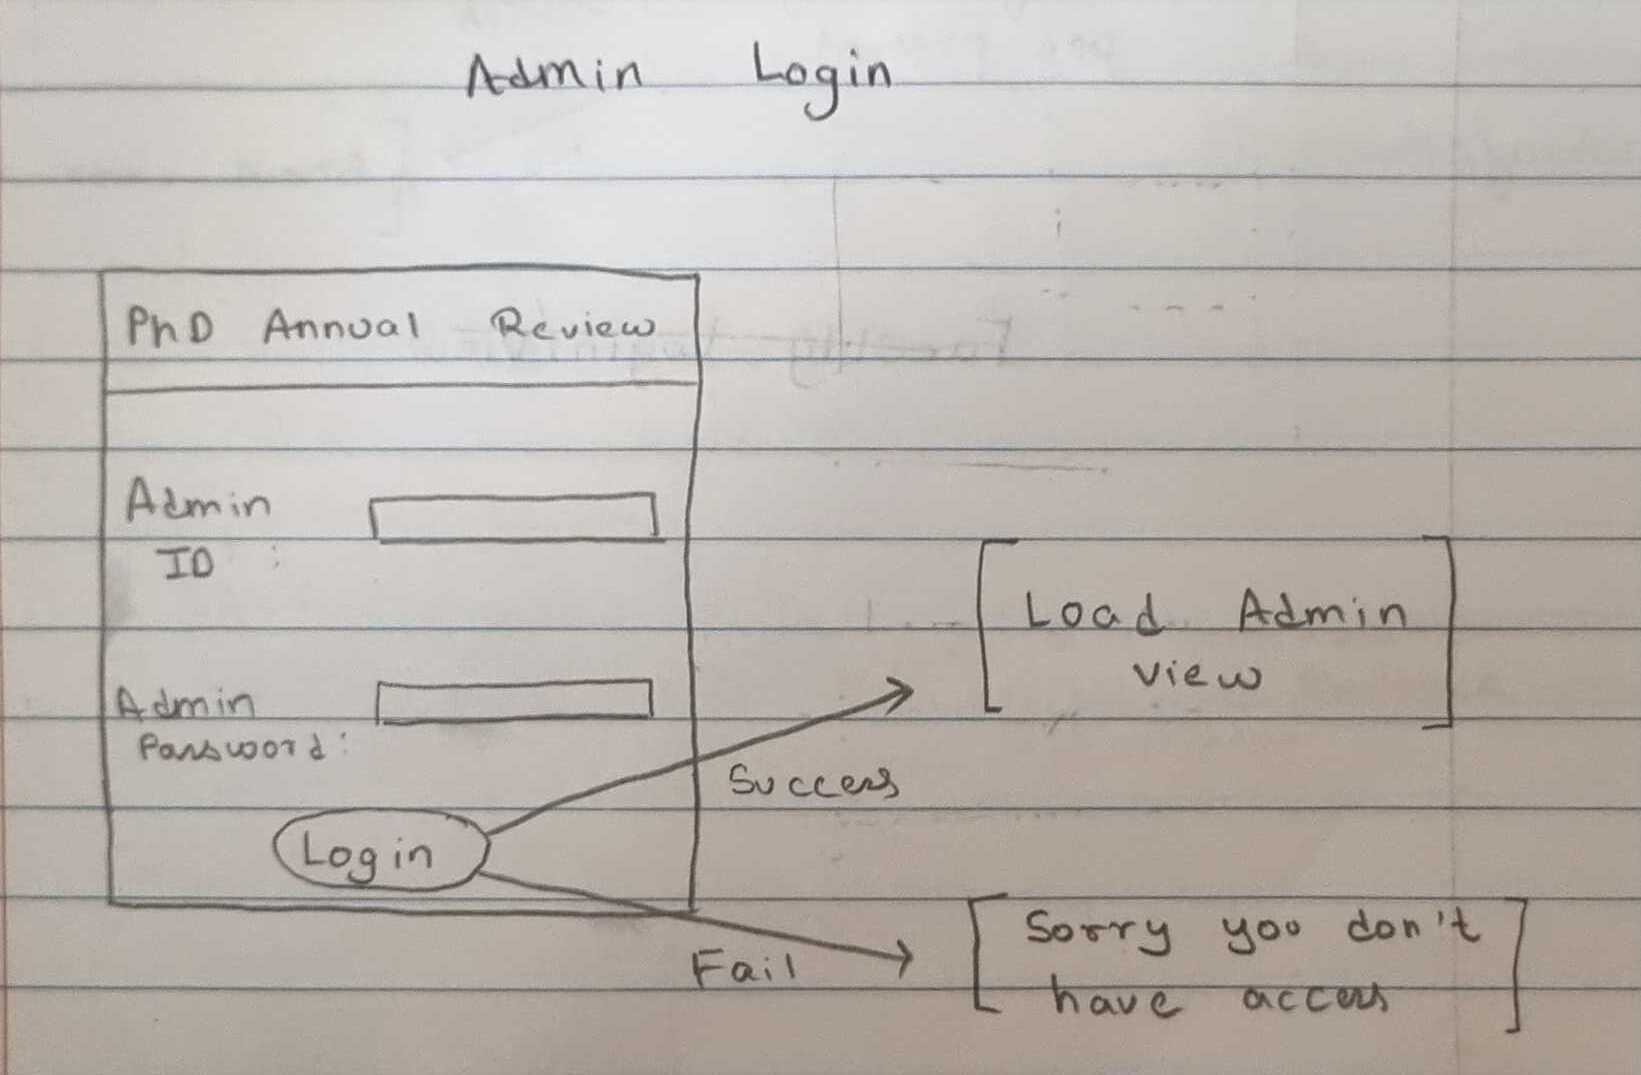 Admin Login
PhD Annual Review
Admin
ID :
Admin
Password:
Login
Success
Load Admin
view
Fail
Sorry you don't
have access